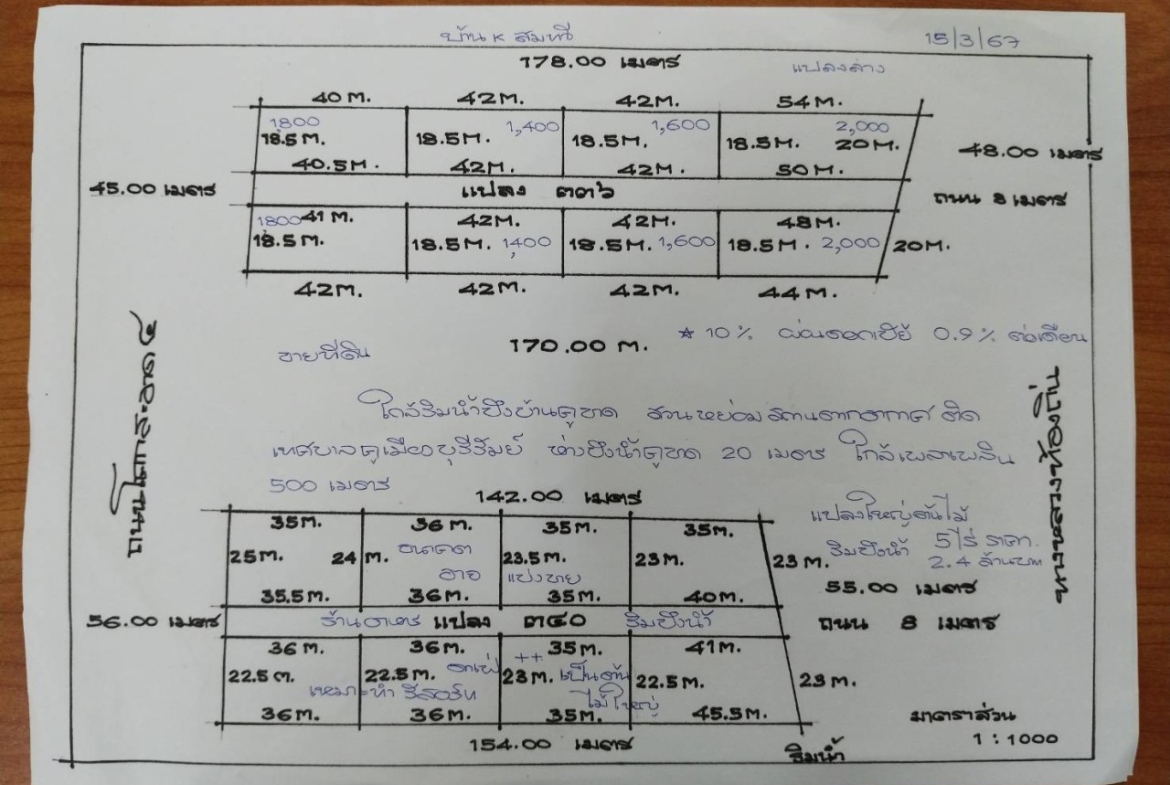 บ้าน K สมหวี 15/3/67
178.00 เมตร แปลงล่าง
40 M. 42 M. 42 M. 54 M.
1800 1,400 1,600 2,000
18.5 M. 18.5 M. 18.5 M. 18.5 M. 20 M. 48.00 เมตร
40.5 M. 42 M. 42 M. 50 M.
45.00 เมตร แปลง ๓๓๖ ถนน 8 เมตร
1800 41 M. 42 M. 42 M. 48 M.
18.5 M. 18.5 M. 1,400 18.5 M. 1,600 18.5 M. 2,000 20 M.
42 M. 42 M. 42 M. 44 M.
* 10% ผ่อนดอกเบี้ย 0.9% ต่อเดือน
ขายที่ดิน 170.00 M.
ใกล้ริมน้ำบึงบ้านคูขาด สวนหย่อม สถานตากอากาศ ติด
เทศบาลคูเมือง บุรีรัมย์ ห่างบึงน้ำคูขาด 20 เมตร ใกล้เพลาเพลิน
500 เมตร
ถนนโคกสะอาด ๔
142.00 เมตร
35 M. 36 M. 35 M. 35 M. แปลงใหญ่ต้นไม้
25 M. 24 M. อนาคต 23.5 M. 23 M. 23 M. ริมบึงน้ำ 5 ไร่ ราคา
อาจ แบ่งขาย 2.4 ล้านบาท
35.5 M. 36 M. 35 M. 40 M. 55.00 เมตร
56.00 เมตร ร้านอาหาร แปลง ๓๔๐ ริมบึงน้ำ ถนน 8 เมตร
36 M. 36 M. 35 M. 41 M.
22.5 M. 22.5 M. กาแฟ ++ 23 M. เป็นต้น 22.5 M. 23 M.
เหมาะทำ รีสอร์ท ไม้ใหญ่
36 M. 36 M. 35 M. 45.5 M. มาตราส่วน
154.00 เมตร 1 : 1000
ริมน้ำ